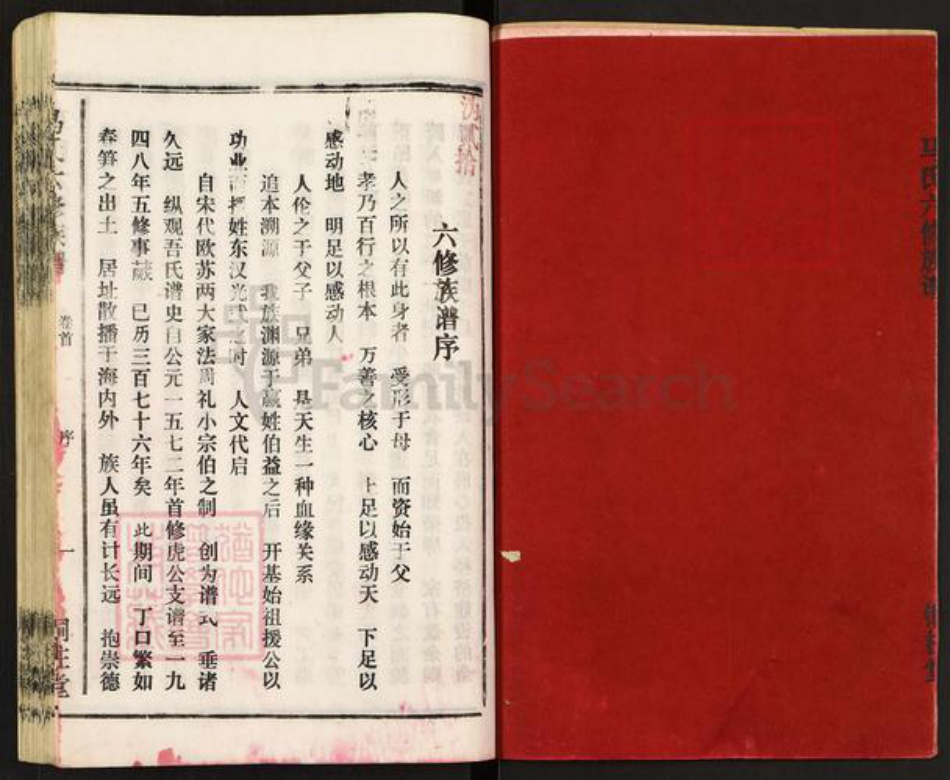 六修族谱序
人之所以有此身者 受形于母 而资始于父
孝乃百行之根本 万善之核心 上足以感动天 下足以
感动地 明足以感动人
人伦之于父子 兄弟 是天生一种血缘关系
追本溯源 我族渊源于嬴姓伯益之后 开基始祖援公以
功业 姓东汉光武之时 人文代启
自宋代欧苏两大家法周礼小宗伯之制 创为谱式 垂诸
久远 纵观吾氏谱史自公元一五七二年首修虎公支谱至一九
四八年五修事蒇 已历三百七十六年矣 此期间 丁口繁如
春笋之出土 居址散播于海内外 族人虽有计长远 抱崇德
卷首 序 一
铜柱堂
马氏六修族谱
FamilySearch